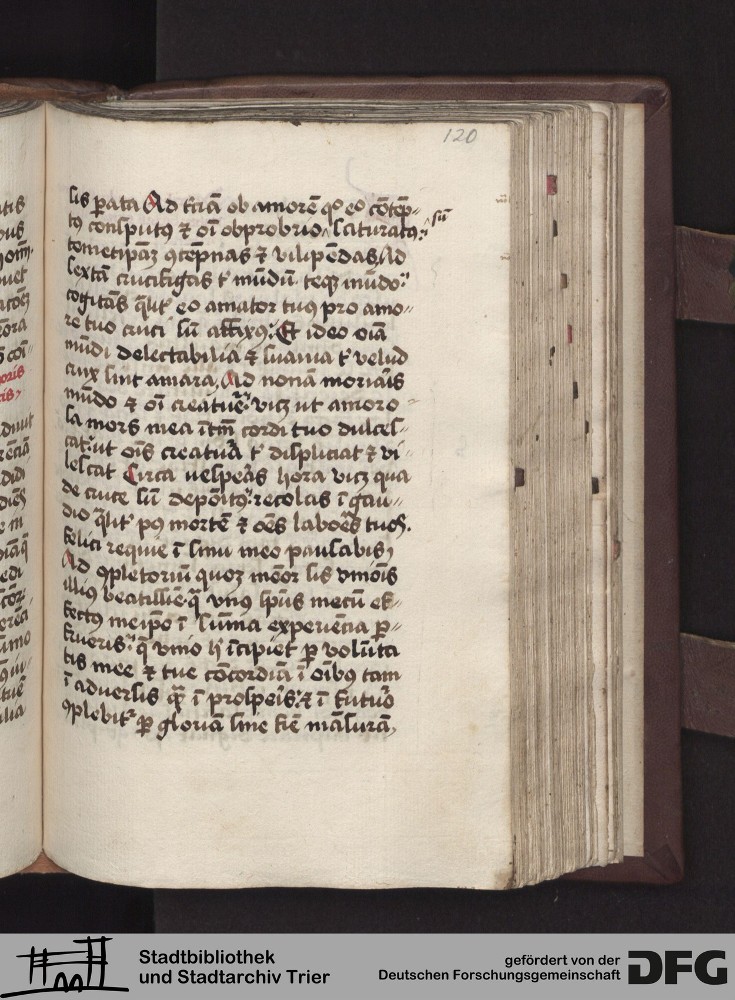 120
lis p̄ata Ad tc̄iā ob amorē qͦ eo cōtēp-
tꝰ consputꝰ ⁊ oī obprobrio saturatꝰ sū
temetip̄aꝫ ꝯtēpnas ⁊ vilipēdas Ad
sextā crucifigas t' mūdū teqꝫ mūdo
cogitās q̄lit' eo amator tuꝰ pro amo-
re tuo cruci sū affixꝰ Et ideo oīa
mūdi delectabilia ⁊ suauia t' velud
crux sint amara, Ad nonā moriaīs
mūdo ⁊ oī creatuᵉ vicꝫ ut amoro-
sa mors mea ītm̄ cordi tuo dulces-
cat ut oīs creatuᵃ t' displiciat ⁊ vi-
lescat Circa uespeᵃs hora vicꝫ qua
de cruce sū depōitꝰ recolas ī gau-
dio q̄lit' pꝰ mortē ⁊ oēs laboēs tuos.
felici requie ī sinu meo pausabis,
Ad ꝯpletoriū quoqꝫ memor sis vnioīs
illiꝰ beatissīe q̄ vnꝰ sp̄us mecū ef-
fectꝰ meip̄o ī summa experiēcia p̄-
frueris q̄ vnio h' īcipiet p̄ volūta
tis mee ⁊ tue cōcordiā ī oībꝰ tam
ī aduersis qᷓ ī prospeīs ⁊ ī futuᵒ
ꝯplebit' p̄ gloriā sine fīe māsurā,
Stadtbibliothek
und Stadtarchiv Trier
gefördert von der
Deutschen Forschungsgemeinschaft
DFG